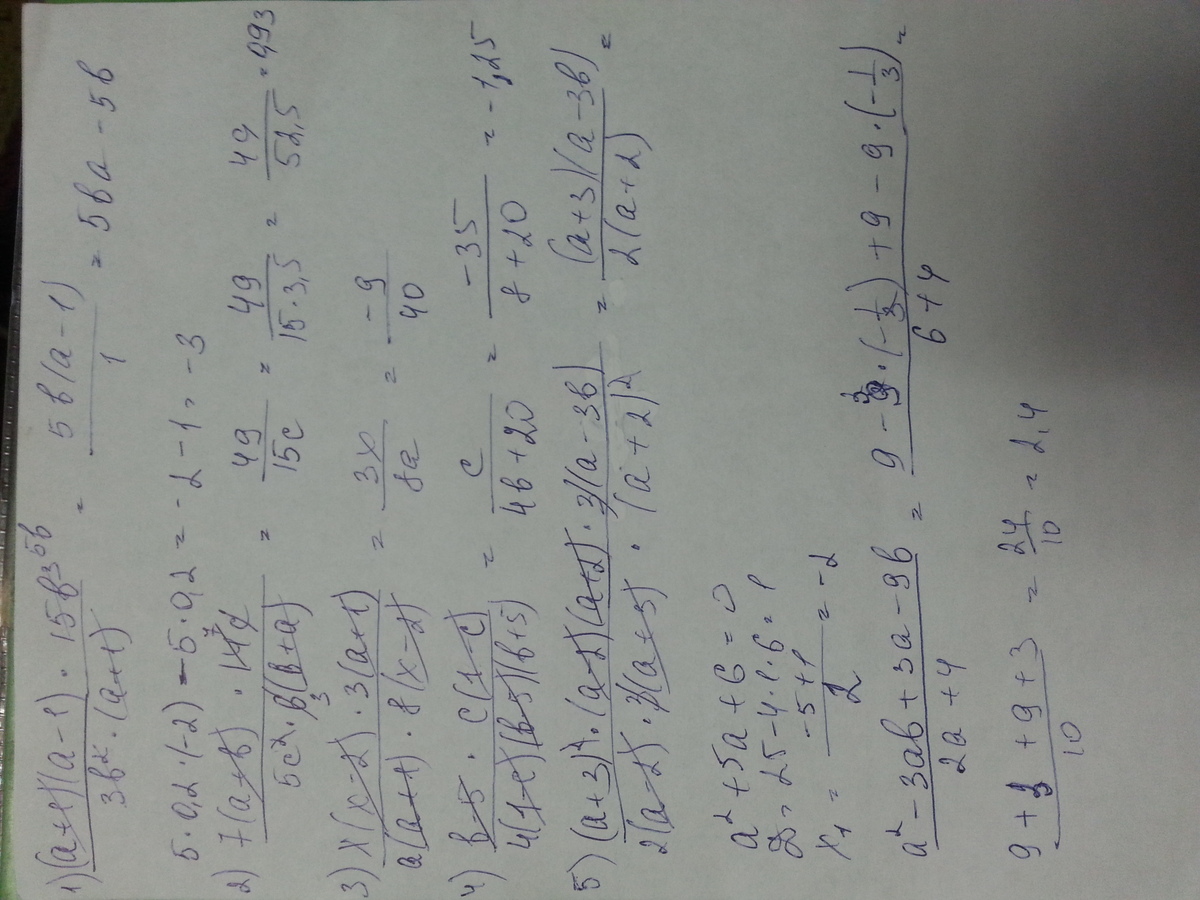 1) (a+1)(a-1) · 15в³ 5в / 3в² · (a+1) = 5в(a-1) / 1 = 5вa - 5в
5·0,2·(-2) - 5·0,2 = -2 - 1 = -3
2) 7(a+в) · 14c / 5c² · 6(в+a) 3 = 49 / 15c = 49 / 15·3,5 = 49 / 52,5 = 0,93
3) x(x-2) · 3(a+1) / a(a+1) · 8(x-2) = 3x / 8a = -9 / 40
4) в-5 · c(1-c) / 4(1-c)(в-5)(в+5) = c / 4в+20 = -35 / 8+20 = -1,25
5) (a+3)² · (a-2)(a+2) · 3(a-3в) / 2(a-2) · 3(a+3) · (a+2)² = (a+3)(a-3в) / 2(a+2) =
a² + 5a + 6 = 0
D = 25 - 4·1·6 = 1
x₁ = -5+1 / 2 = -2
a² - 3aв + 3a - 9в / 2a + 4 = 9 - 9·(-1/3) + 9 - 9·(-1/3) / 6+4 =
9 + 3 + 9 + 3 / 10 = 24 / 10 = 2,4